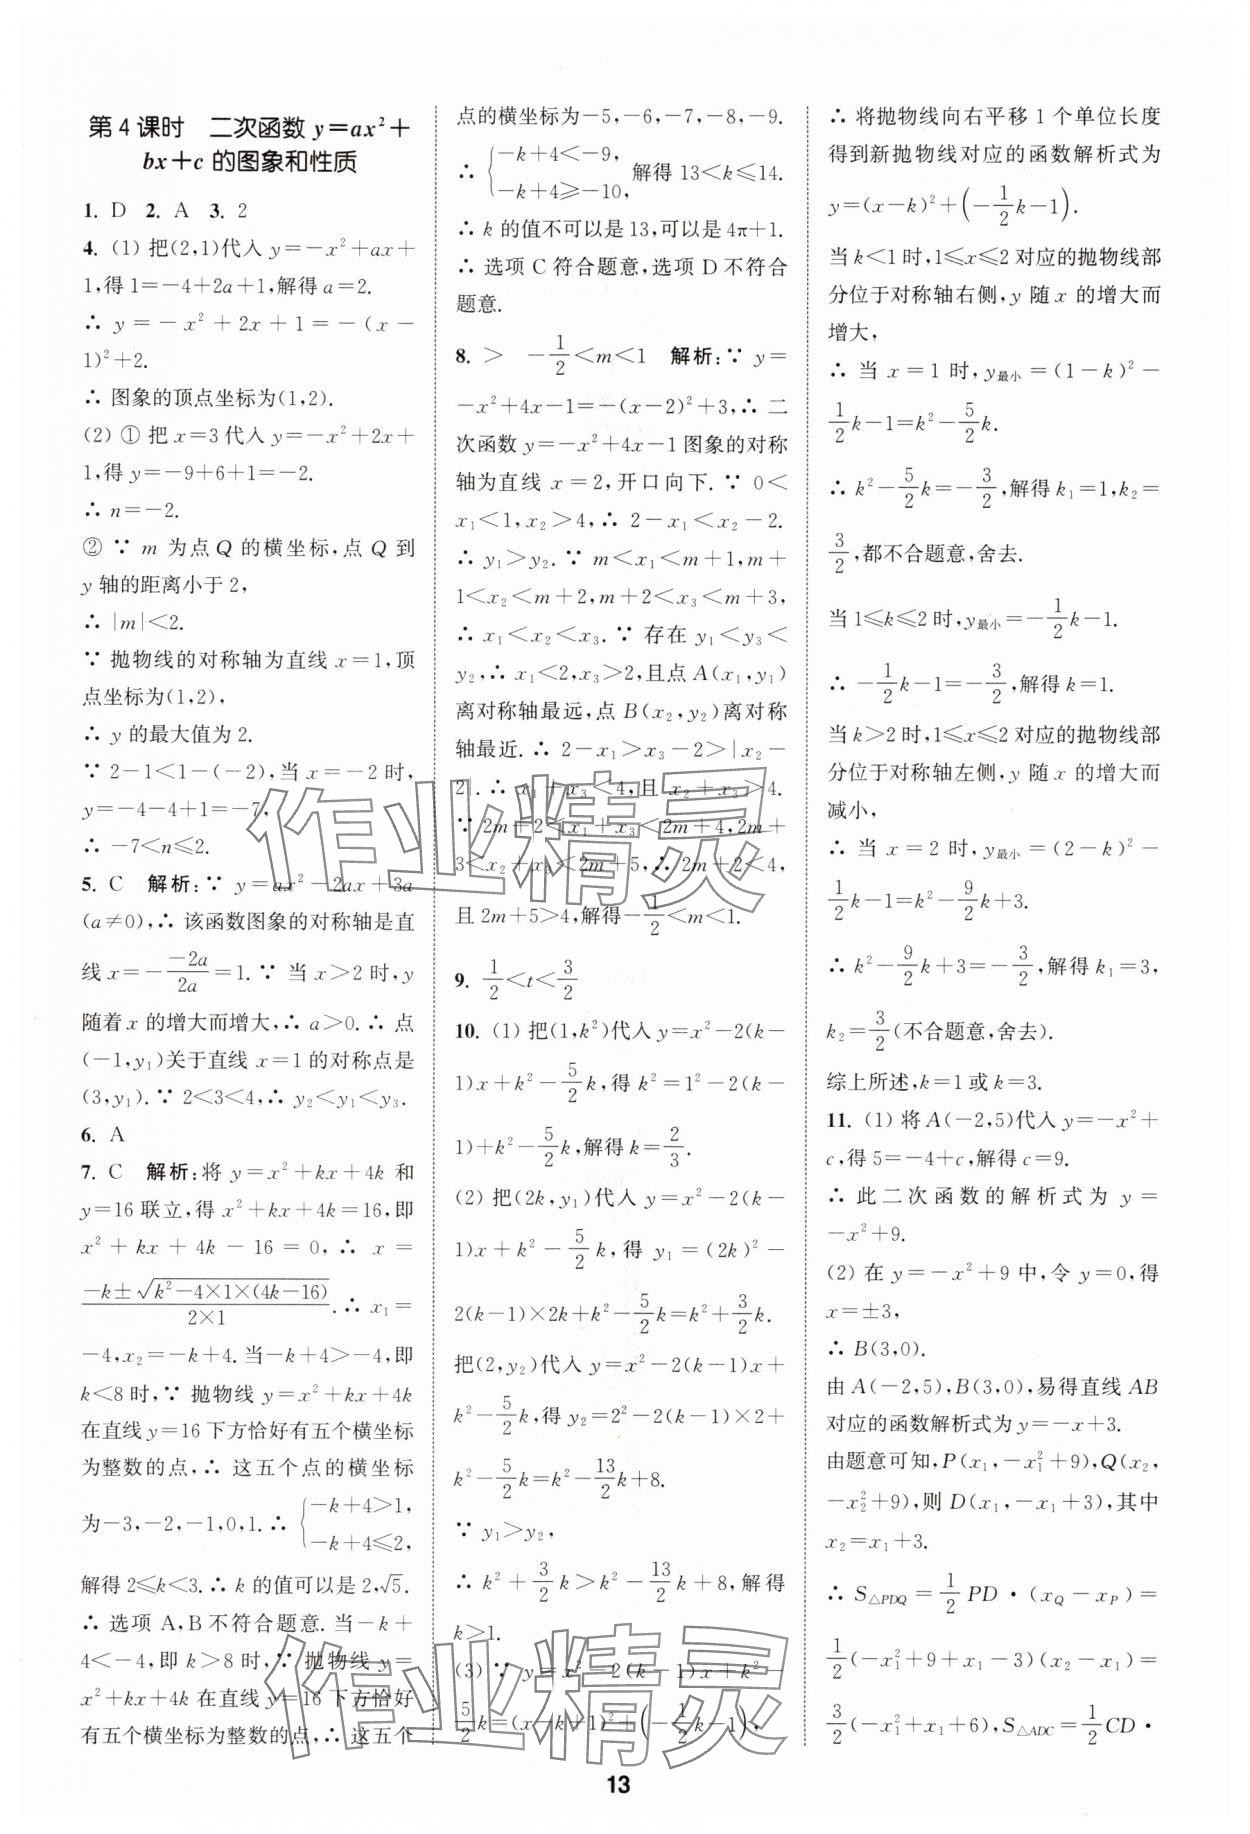 第4课时 二次函数 y=ax²+
bx+c 的图象和性质
1. D 2. A 3. 2
4. (1) 把(2,1)代入 y=-x²+ax+
1,得 1=-4+2a+1,解得 a=2.
∴ y=-x²+2x+1=-(x-
1)²+2.
∴ 图象的顶点坐标为(1,2).
(2) ① 把 x=3 代入 y=-x²+2x+
1,得 y=-9+6+1=-2.
∴ n=-2.
② ∵ m 为点 Q 的横坐标,点 Q 到
y 轴的距离小于 2,
∴ |m|<2.
∵ 抛物线的对称轴为直线 x=1,顶
点坐标为(1,2),
∴ y 的最大值为 2.
∵ 2-1<1-(-2),当 x=-2 时,
y=-4-4+1=-7,
∴ -7<n≤2.
5. C 解析:∵ y=ax²-2ax+3a
(a≠0),∴ 该函数图象的对称轴是直
线 x=-\frac{-2a}{2a}=1.∵ 当 x>2 时,y
随着 x 的增大而增大,∴ a>0.∴ 点
(-1,y₁)关于直线 x=1 的对称点是
(3,y₁).∵ 2<3<4,∴ y₂<y₁<y₃.
6. A
7. C 解析:将 y=x²+kx+4k 和
y=16 联立,得 x²+kx+4k=16,即
x²+kx+4k-16=0,∴ x=
\frac{-k±\sqrt{k²-4×1×(4k-16)}}{2×1}.∴ x₁=
-4,x₂=-k+4.当-k+4>-4,即
k<8 时,∵ 抛物线 y=x²+kx+4k
在直线 y=16 下方恰好有五个横坐标
为整数的点,∴ 这五个点的横坐标
为-3,-2,-1,0,1.∴ {-k+4>1,
-k+4≤2,
解得 2≤k<3.∴ k 的值可以是 2,√5.
∴ 选项 A,B 不符合题意.当-k+
4<-4,即 k>8 时,∵ 抛物线 y=
x²+kx+4k 在直线 y=16 下方恰好
有五个横坐标为整数的点,∴ 这五个
点的横坐标为-5,-6,-7,-8,-9.
∴ {-k+4<-9,
-k+4≥-10, 解得 13<k≤14.
∴ k 的值不可以是 13,可以是 4π+1.
∴ 选项 C 符合题意,选项 D 不符合
题意.
8. > -\frac{1}{2}<m<1 解析:∵ y=
-x²+4x-1=-(x-2)²+3,∴ 二
次函数 y=-x²+4x-1 图象的对称
轴为直线 x=2,开口向下.∵ 0<
x₁<1,x₂>4,∴ 2-x₁<x₂-2.
∴ y₁>y₂.∵ m<x₁<m+1,m+
1<x₂<m+2,m+2<x₃<m+3,
∴ x₁<x₂<x₃.∵ 存在 y₁<y₃<
y₂,∴ x₁<2,x₃>2,且点 A(x₁,y₁)
离对称轴最远,点 B(x₂,y₂)离对称
轴最近.∴ 2-x₁>x₃-2>|x₂-
2|.∴ x₁+x₃<4,且 x₂+x₃>4.
∵ 2m+2<x₁+x₃<2m+4,2m+
3<x₂+x₃<2m+5,∴ 2m+2<4,
且 2m+5>4,解得-\frac{1}{2}<m<1.
9. \frac{1}{2}<t<\frac{3}{2}
10. (1) 把(1,k²)代入 y=x²-2(k-
1)x+k²-\frac{5}{2}k,得 k²=1²-2(k-
1)+k²-\frac{5}{2}k,解得 k=\frac{2}{3}.
(2) 把(2k,y₁)代入 y=x²-2(k-
1)x+k²-\frac{5}{2}k,得 y₁=(2k)²-
2(k-1)×2k+k²-\frac{5}{2}k=k²+\frac{3}{2}k.
把(2,y₂)代入 y=x²-2(k-1)x+
k²-\frac{5}{2}k,得 y₂=2²-2(k-1)×2+
k²-\frac{5}{2}k=k²-\frac{13}{2}k+8.
∵ y₁>y₂,
∴ k²+\frac{3}{2}k>k²-\frac{13}{2}k+8,解得
k>1.
(3) ∵ y=x²-2(k-1)x+k²-
\frac{5}{2}k=(x-k+1)²+(-\frac{1}{2}k-1),
∴ 将抛物线向右平移 1 个单位长度
得到新抛物线对应的函数解析式为
y=(x-k)²+(-\frac{1}{2}k-1).
当 k<1 时,1≤x≤2 对应的抛物线部
分位于对称轴右侧,y 随 x 的增大而
增大,
∴ 当 x=1 时,y最小=(1-k)²-
\frac{1}{2}k-1=k²-\frac{5}{2}k.
∴ k²-\frac{5}{2}k=-\frac{3}{2},解得 k₁=1,k₂=
\frac{3}{2},都不合题意,舍去.
当 1≤k≤2 时,y最小=-\frac{1}{2}k-1.
∴ -\frac{1}{2}k-1=-\frac{3}{2},解得 k=1.
当 k>2 时,1≤x≤2 对应的抛物线部
分位于对称轴左侧,y 随 x 的增大而
减小,
∴ 当 x=2 时,y最小=(2-k)²-
\frac{1}{2}k-1=k²-\frac{9}{2}k+3.
∴ k²-\frac{9}{2}k+3=-\frac{3}{2},解得 k₁=3,
k₂=\frac{3}{2}(不合题意,舍去).
综上所述,k=1 或 k=3.
11. (1) 将 A(-2,5)代入 y=-x²+
c,得 5=-4+c,解得 c=9.
∴ 此二次函数的解析式为 y=
-x²+9.
(2) 在 y=-x²+9 中,令 y=0,得
x=±3,
∴ B(3,0).
由 A(-2,5),B(3,0),易得直线 AB
对应的函数解析式为 y=-x+3.
由题意可知,P(x₁,-x₁²+9),Q(x₂,
-x₂²+9),则 D(x₁,-x₁+3),其中
x₂=x₁+3.
∴ S△PDQ=\frac{1}{2}PD·(xQ-xP)=
\frac{1}{2}(-x₁²+9+x₁-3)(x₂-x₁)=
\frac{3}{2}(-x₁²+x₁+6),S△ADC=\frac{1}{2}CD·
13
作业精灵
作业精灵